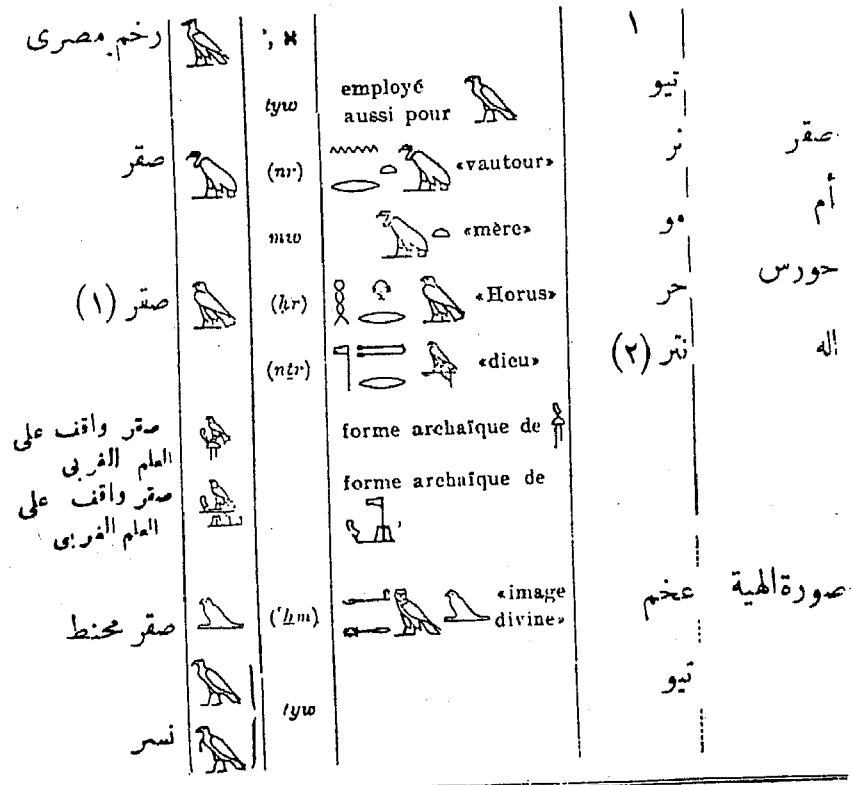 رخم مصرى ', א ١
tyw employé aussi pour تيو
صقر (nr) «vautour» نر صقر
mw «mère» مو أم
صقر (١) (ḥr) «Horus» حر حورس
(nṯr) «dieu» نتر (٢) اله
صقر واقف على العلم الغربى forme archaïque de
صقر واقف على العلم الغربى forme archaïque de
صقر محنط ('ẖm) «image divine» عخم صورة الهية
tyw تيو
نسر